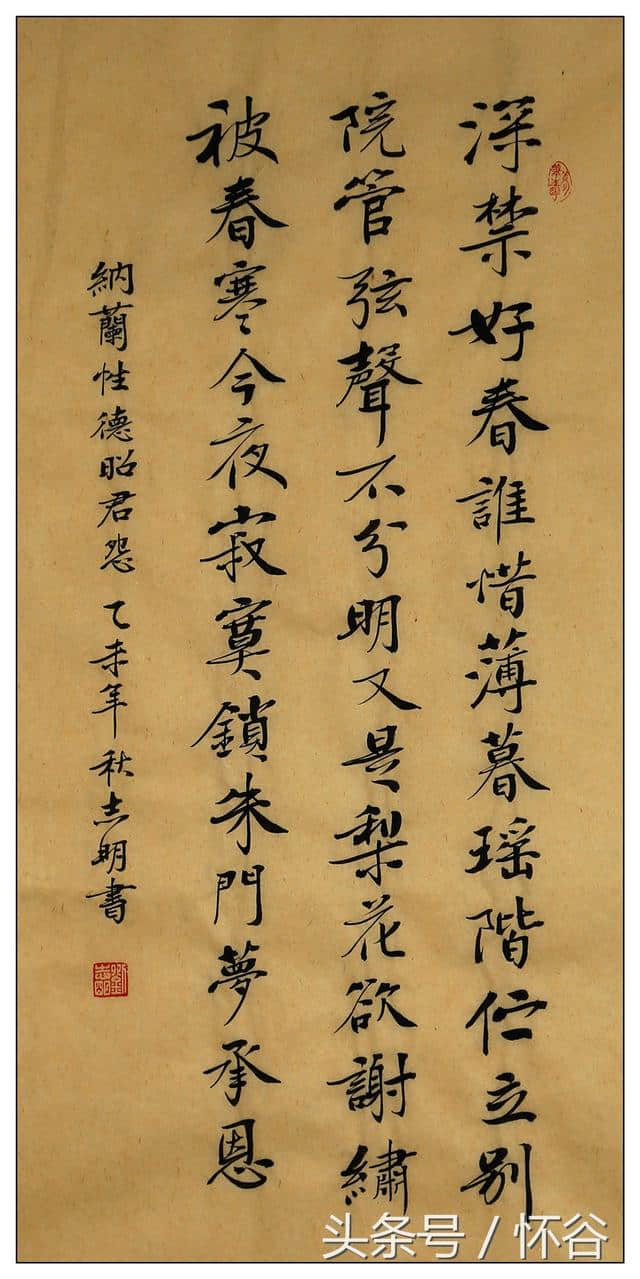 深禁好春誰惜薄暮瑶階伫立别
院管弦聲不分明又是梨花欲謝繡
被春寒今夜寂寞鎖朱門夢承恩
納蘭性德昭君怨 乙未年秋志明書
头条号 / 怀谷